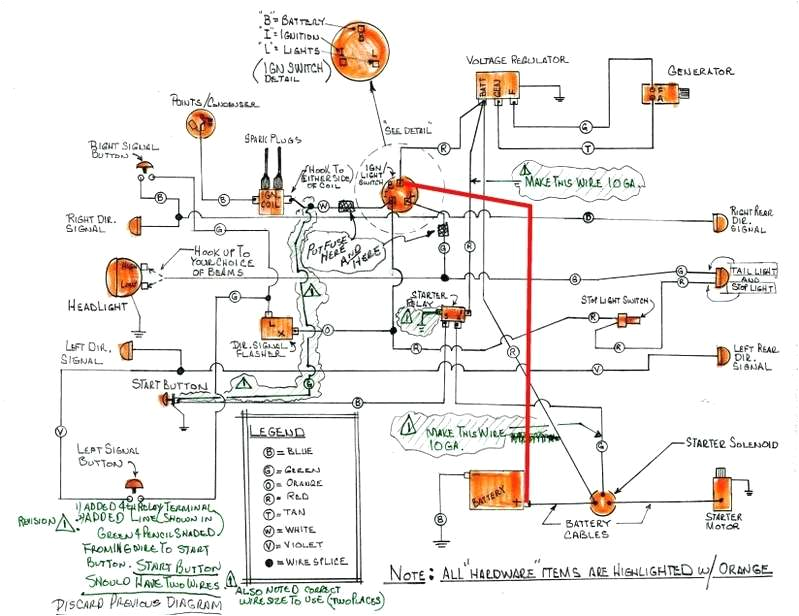 "B" = BATTERY
"I" = IGNITION
"L" = LIGHTS
(IGN SWITCH DETAIL)
VOLTAGE REGULATOR
GENERATOR
BATT
GEN
F
F
A
POINTS/CONDENSER
"SEE DETAIL"
G
R
T
RIGHT SIGNAL
BUTTON
SPARK PLUGS
HOOK TO
EITHER SIDE
OF COIL
IGN/
LIGHT
SWITCH
1
MAKE THIS WIRE 10 GA.
B
B
IGN.
COIL
W
RIGHT DIR.
SIGNAL
B
RIGHT REAR
DIR.
SIGNAL
PUT FUSE
HERE
AND
HERE
G
R
HOOK UP TO
YOUR CHOICE
OF BEAMS
HIGH
LOW
HEADLIGHT
G
G
R
TAIL LIGHT
AND
STOP LIGHT
1
STARTER
RELAY
1
S
STOP LIGHT SWITCH
L
X
O
DIR. SIGNAL
FLASHER
R
R
R
LEFT DIR.
SIGNAL
V
LEFT REAR
DIR.
SIGNAL
START BUTTON
1
G
B
LEGEND
B = BLUE
G = GREEN
O = ORANGE
R = RED
T = TAN
W = WHITE
V = VIOLET
= WIRE SPLICE
1
MAKE THIS WIRE
10 GA.
G
V
LEFT SIGNAL
BUTTON
STARTER SOLENOID
BATTERY
+
B
BATTERY
CABLES
STARTER
MOTOR
REVISION 1
1) ADDED 4TH RELAY TERMINAL
ADDED LINE SHOWN IN
GREEN & PENCIL SHADED
FROM IGN WIRE TO START
BUTTON. START BUTTON
SHOULD HAVE TWO WIRES
DISCARD PREVIOUS DIAGRAM
1
ALSO NOTED CORRECT
WIRE SIZE TO USE (TWO PLACES)
NOTE: ALL "HARDWARE" ITEMS ARE HIGHLIGHTED W/ ORANGE